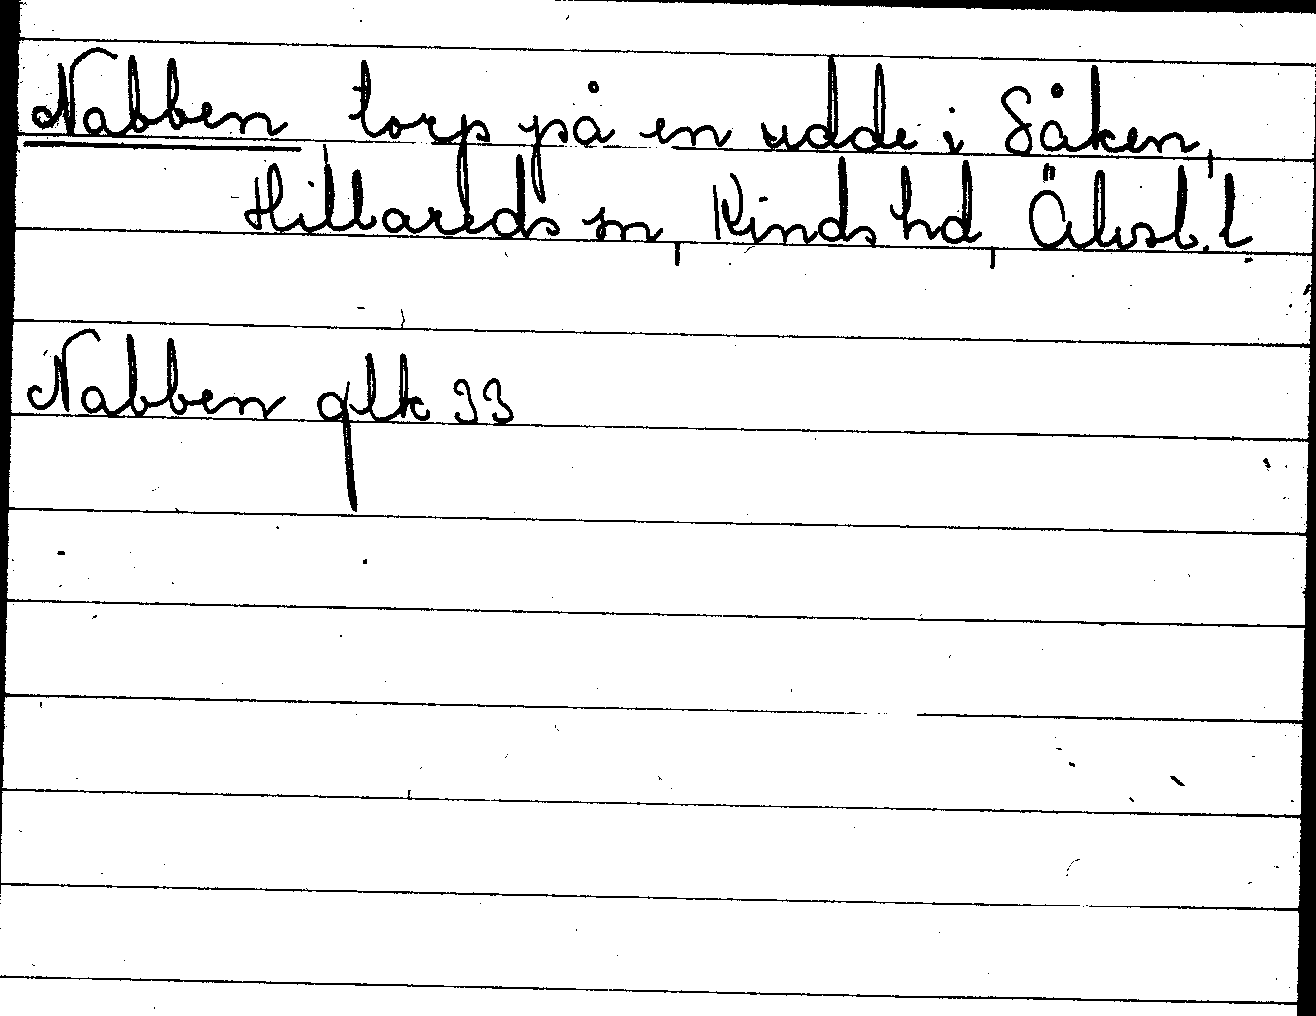 Nabben torp på en udde i Såken,
Hillareds sn, Kinds hd, Älvsb. l.
Nabben glk 33